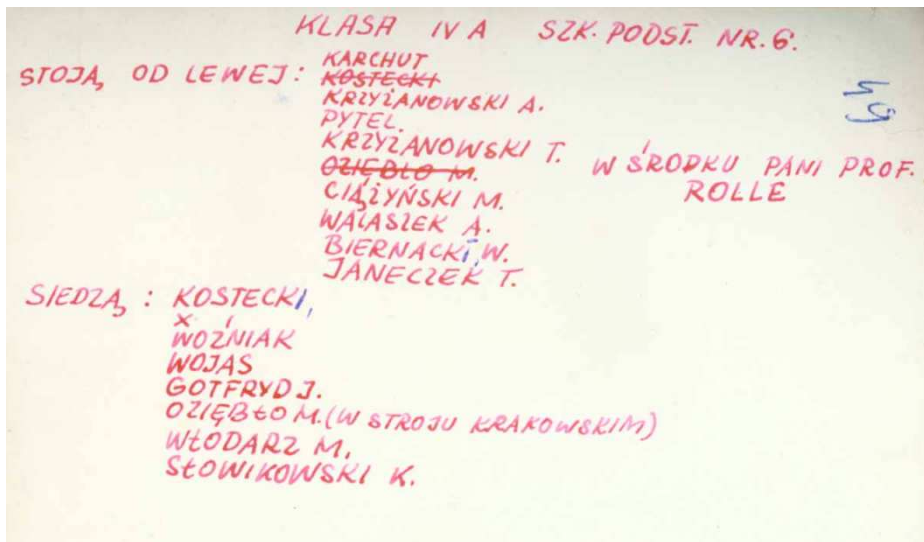 KLASA IV A SZK. PODST. NR. 6.
49
STOJĄ OD LEWEJ: KARCHUT
KOSTECKI
KRZYŻANOWSKI A.
PYTEL.
KRZYŻANOWSKI T.
OZIĘBŁO M.
W ŚRODKU PANI PROF.
ROLLE
CIĄŻYŃSKI M.
WALASZEK A.
BIERNACKI, W.
JANECZEK T.
SIEDZĄ : KOSTECKI,
X
WOŹNIAK
WOJAS
GOTFRYD J.
OZIĘBŁO M. (W STROJU KRAKOWSKIM)
WŁODARZ M.
SŁOWIKOWSKI K.